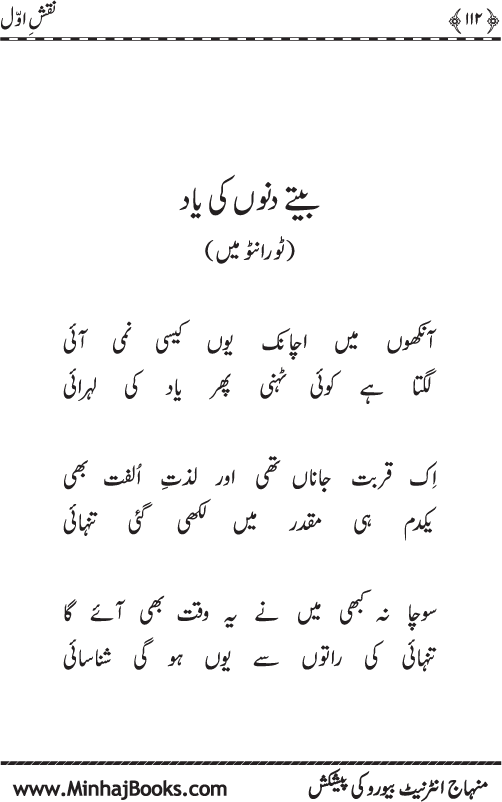 ﴿۱۱۲﴾ نقشِ اوّل
بیتے دنوں کی یاد
(ٹورانٹو میں)
آنکھوں میں اچانک یوں کیسی نمی آئی
لگتا ہے کوئی ٹہنی پھر یاد کی لہرائی
اِک قربت جاناں تھی اور لذتِ اُلفت بھی
یکدم ہی مقدر میں لکھی گئی تنہائی
سوچا نہ کبھی میں نے یہ وقت بھی آئے گا
تنہائی کی راتوں سے یوں ہو گی شناسائی
منہاج انٹرنیٹ بیورو کی پیشکش www.MinhajBooks.com